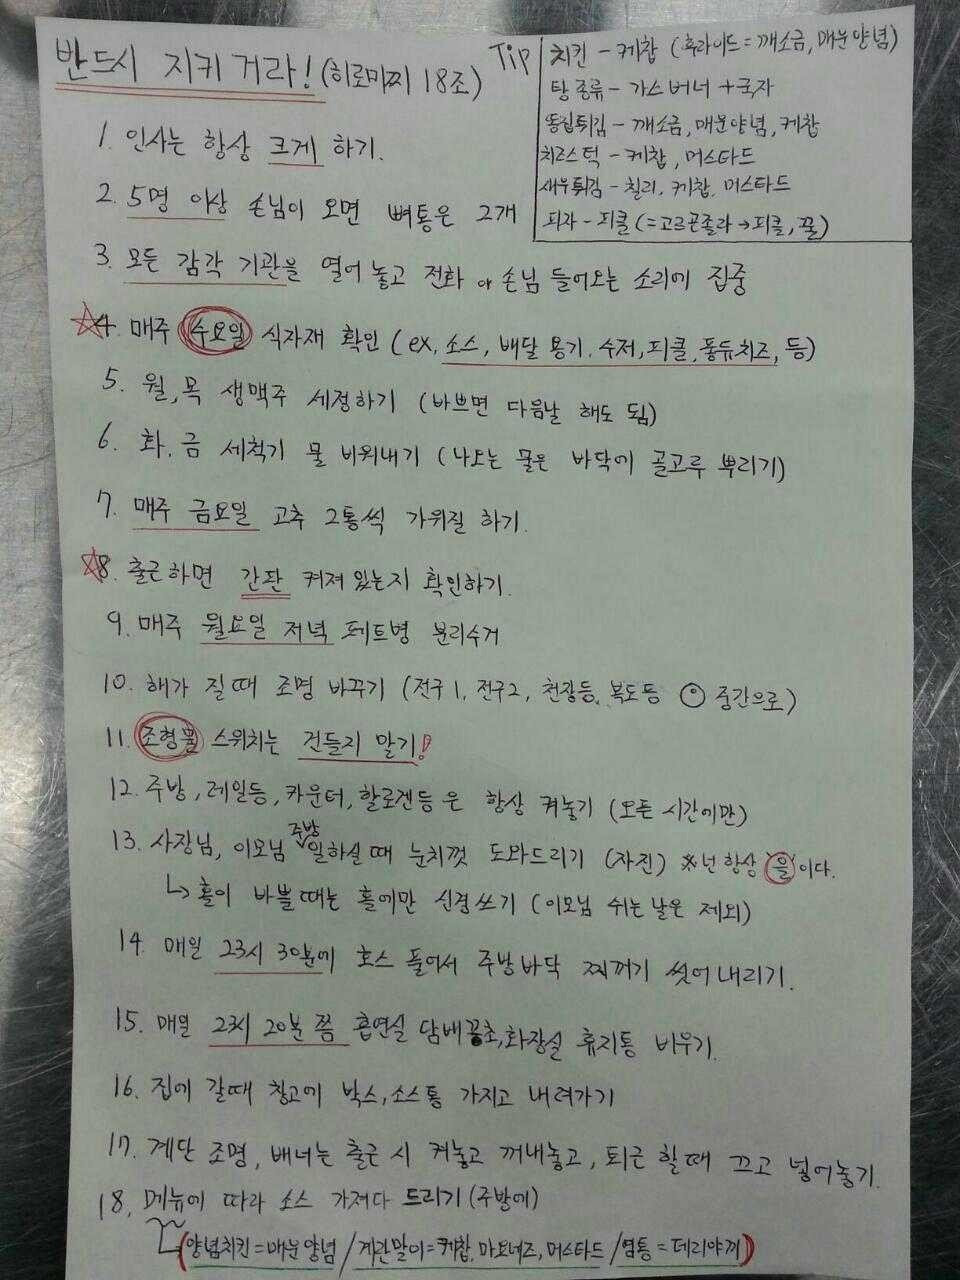 반드시 지키거라! (히로미찌 18조)
Tip
치킨 - 케찹 (후라이드 = 깨소금, 매운양념)
탕 종류 - 가스버너 + 국자
똥집튀김 - 깨소금, 매운양념, 케찹
치즈스틱 - 케찹, 머스타드
새우튀김 - 칠리, 케찹, 머스타드
피자 - 피클 (= 고르곤졸라 → 피클, 꿀)
1. 인사는 항상 크게 하기.
2. 5명 이상 손님이 오면 뼈통은 2개
3. 모든 감각 기관을 열어 놓고 전화 or 손님 들어오는 소리에 집중
☆4. 매주 수요일 식자재 확인 (ex, 소스, 배달 용기, 수저, 피클, 퐁듀치즈, 등)
5. 월, 목 생맥주 세정하기 (바쁘면 다음날 해도 됨)
6. 화, 금 세척기 물 비워내기 (나오는 물은 바닥에 골고루 뿌리기)
7. 매주 금요일 고추 2통씩 가위질 하기.
☆8. 출근하면 간판 켜져 있는지 확인하기.
9. 매주 월요일 저녁 페트병 분리수거
10. 해가 질 때 조명 바꾸기 (전구1, 전구2, 천장등, 복도등 ⊙ 중간으로)
11. 조형물 스위치는 건들지 말기!
12. 주방, 레일등, 카운터, 할로겐등은 항상 켜놓기 (모든 시간이만)
13. 사장님, 이모님 주방 일하실 때 눈치껏 도와드리기 (자진) ※넌 항상 "을"이다.
↳ 홀이 바쁠 때는 홀에만 신경쓰기 (이모님 쉬는 날은 제외)
14. 매일 23시 30분에 호스 틀어서 주방바닥 찌꺼기 씻어 내리기.
15. 매일 23시 20분 쯤 흡연실 담배꽁초, 화장실 휴지통 비우기.
16. 집에 갈때 창고에 박스, 소스통 가지고 내려가기
17. 계단 조명, 배너는 출근 시 켜놓고 꺼내놓고, 퇴근 할 때 끄고 넣어놓기.
18. 메뉴에 따라 소스 가져다 드리기 (주방에)
(양념치킨 = 매운양념 / 계란말이 = 케찹, 마요네즈, 머스타드 / 염통 = 데리야끼)